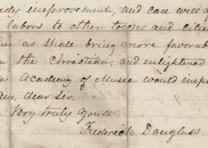 improvement, and can well a
labors to other towns and cities
as shall bring more favorable
the Christian, and enlightened
Academy of Music would
dear Sir
Very truly Yours
Frederick Douglass